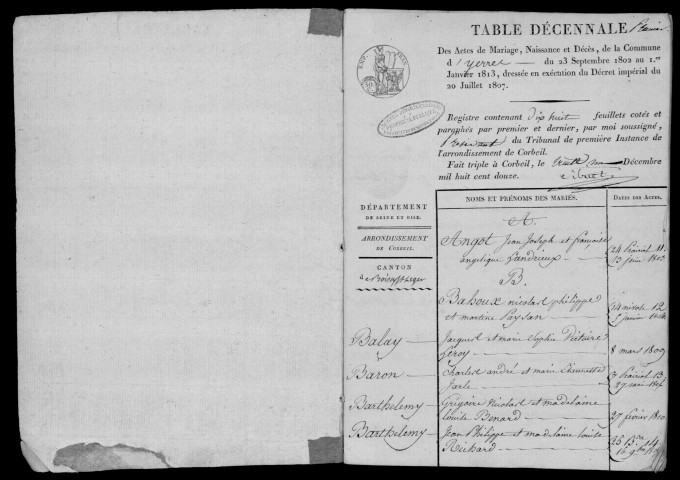 TABLE DÉCENNALE Premier
Des Actes de Mariage, Naissance et Décès, de la Commune
d'yerres du 23 Septembre 1802 au 1.er
Janvier 1813, dressée en exécution du Décret impérial du
20 Juillet 1807.
Registre contenant dix huit feuillets cotés et
paraphés par premier et dernier, par moi soussigné,
Président du Tribunal de première Instance de
l'arrondissement de Corbeil.
Fait triple à Corbeil, le trente un Décembre
mil huit cent douze.
DÉPARTEMENT
DE SEINE ET OISE.
ARRONDISSEMENT
DE CORBEIL.
CANTON
de Boissy St Leger
NOMS ET PRÉNOMS DES MARIÉS. DATES DES ACTES.
A.
Angot Jean Joseph et françoise
angelique Landrieux 24 prairial 11.
13 juin 1803
B.
Bahoux nicolas philippe 14 nivose 12
et martine Paysan 5 janvier 1804
Balay Jacques et marie Sophie Victoire
Leroy 8 mars 1809
Baron Charles andré et marie
27 mai 1805
Barthelemy Grégoire nicolas et madelaine
louise Benard 27 février 1810
Barthelemy Jean Philippe et madelaine louise
Richard